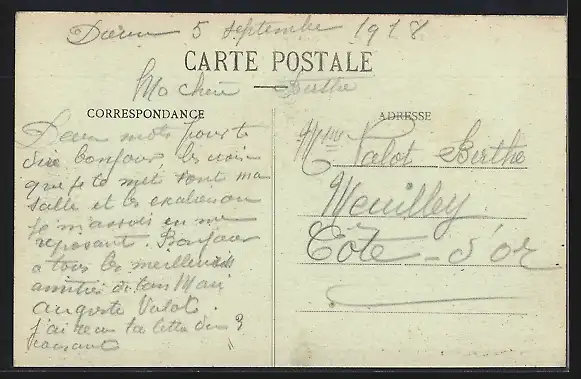 5 septembre 1918
CARTE POSTALE
Ma chère Berthe
CORRESPONDANCE
ADRESSE
Deux mots pour te
dire bonjour les croix
que je te met sont ma
salle et les escaliers ou
je m'assois en me
reposant. Bonjour
a tous les meilleures
amitiés de ton Mari
Auguste Valot.
j'ai reçu ta lettre du 3
courant
Mme Valot Berthe
Weuilley
Côte-d'or